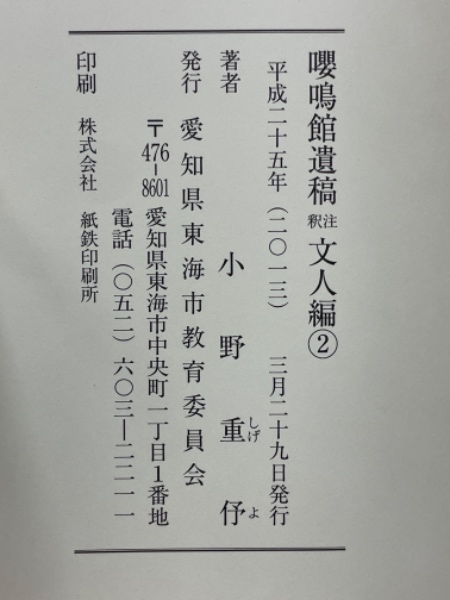 嚶鳴館遺稿 注釈 文人編②
平成二十五年（二〇一三） 三月二十九日発行
著者 小野重伃
しげ よ
発行 愛知県東海市教育委員会
〒476-8601 愛知県東海市中央町一丁目1番地
電話（〇五二）六〇三―二二一一
印刷 株式会社 紙鉄印刷所